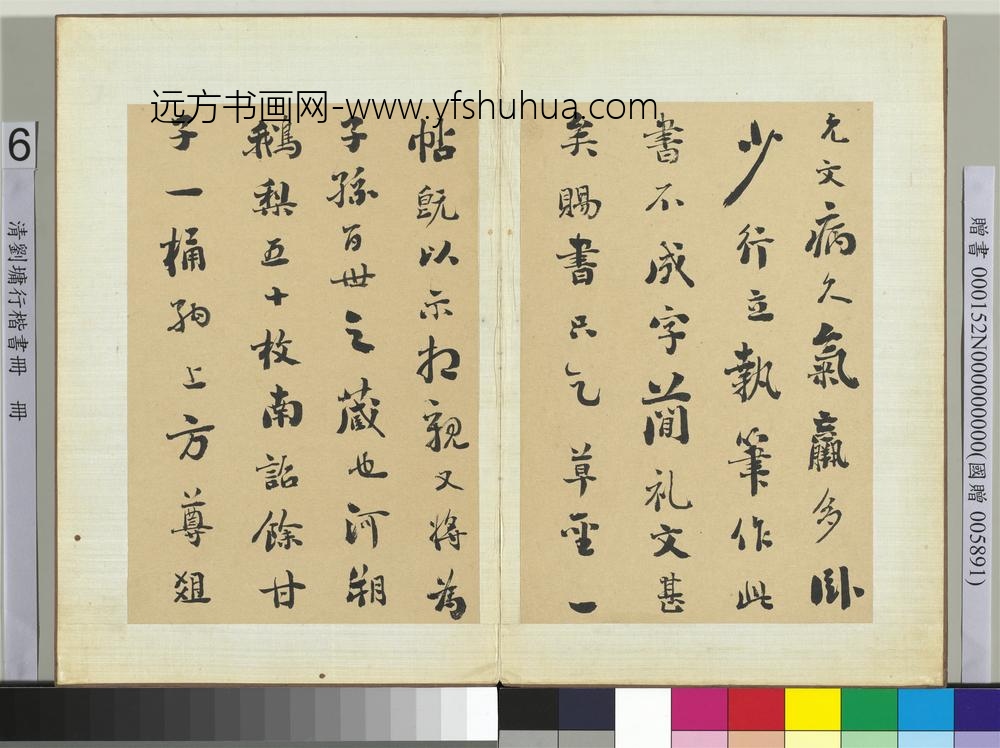 远方书画网-www.yfshuhua.com
允文病久氣羸多卧
少行立執筆作此
書不成字簡礼文甚
矣賜書只乞草聖一
帖既以示相親又將為
子孫百世之藏也河朔
鵝梨五十枚南詔餘甘
子一桶納上方尊俎
6
清劉墉行楷書冊 冊
贈書 000152N000000000(國贈 005891)